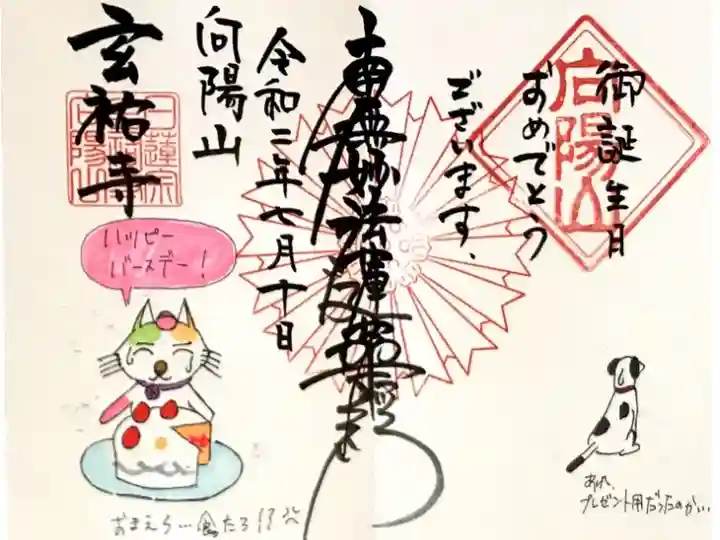 御誕生日
おめでとう
ございます、
南無妙法蓮華経
令和二年七月十日
向陽山
玄祐寺
向陽山
日蓮宗
向陽山
ハッピー
バースデー!
おまえら…食ったろ!?
あれ、
プレゼント用だったのかい…